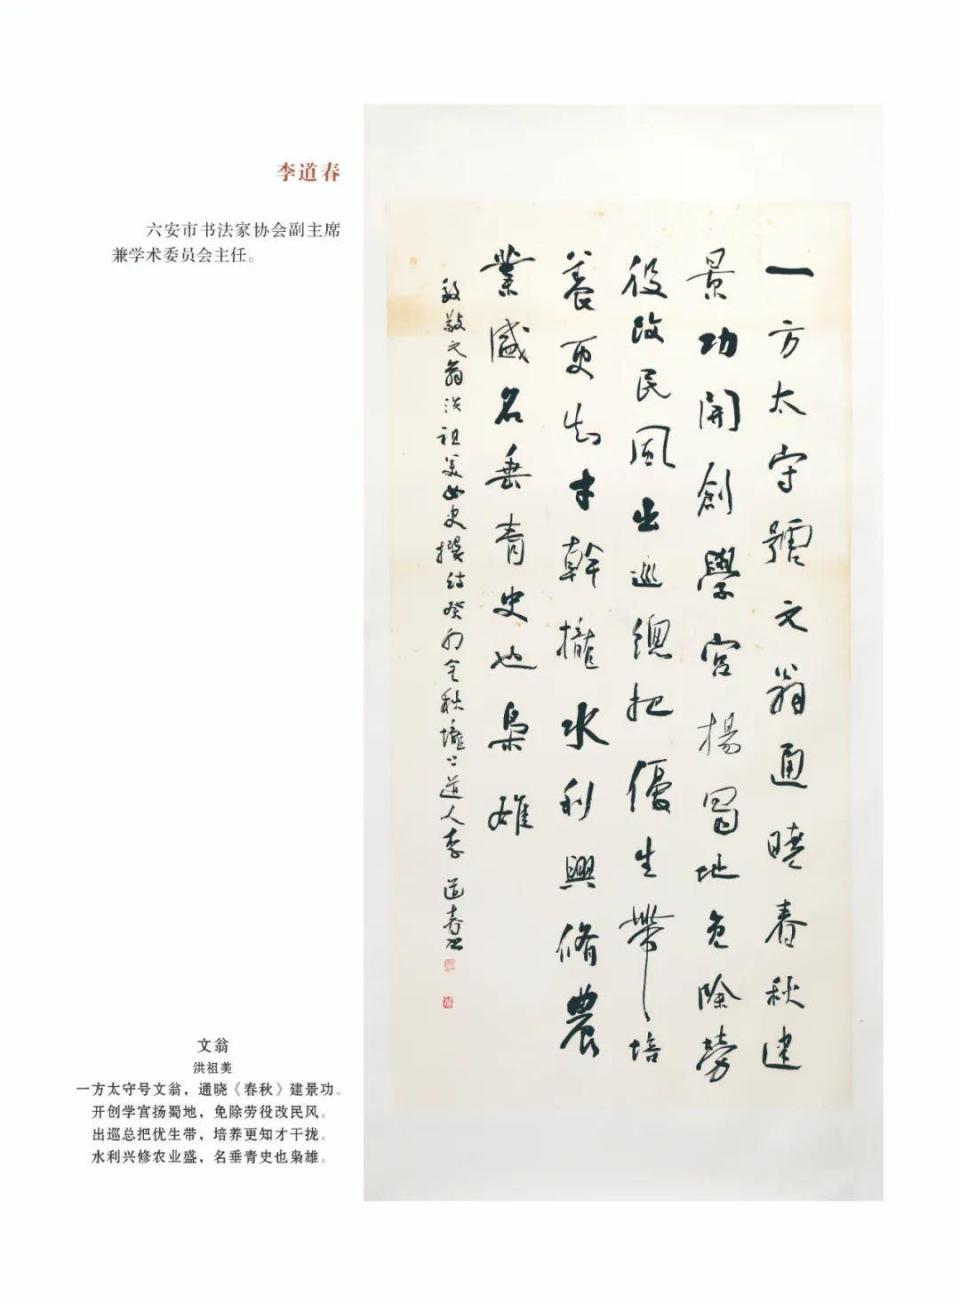 李道春
六安市书法家协会副主席
兼学术委员会主任。
一方太守號文翁通曉春秋建
景功開創學宮揚蜀地免除勞
役改民風出巡總把優生帶培
養更知才幹攏水利興修農
業盛名垂青史也梟雄
致敬文翁洪祖美女史撰詩癸卯金秋壠上道人李道春
文翁
洪祖美
一方太守号文翁，通晓《春秋》建景功。
开创学宫扬蜀地，免除劳役改民风。
出巡总把优生带，培养更知才干拢。
水利兴修农业盛，名垂青史也枭雄。